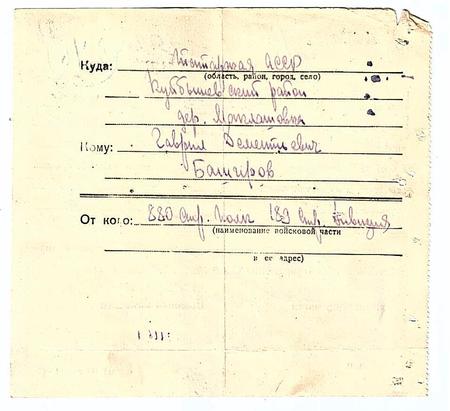 Куда: Татарская АССР
(область, район, город, село)
Куйбышевский район
дер.
Кому: Гаврил Дементьевич
Баширов
От кого: 880 стр. полк 189 стр. дивизия
(наименование войсковой части
и ее адрес)